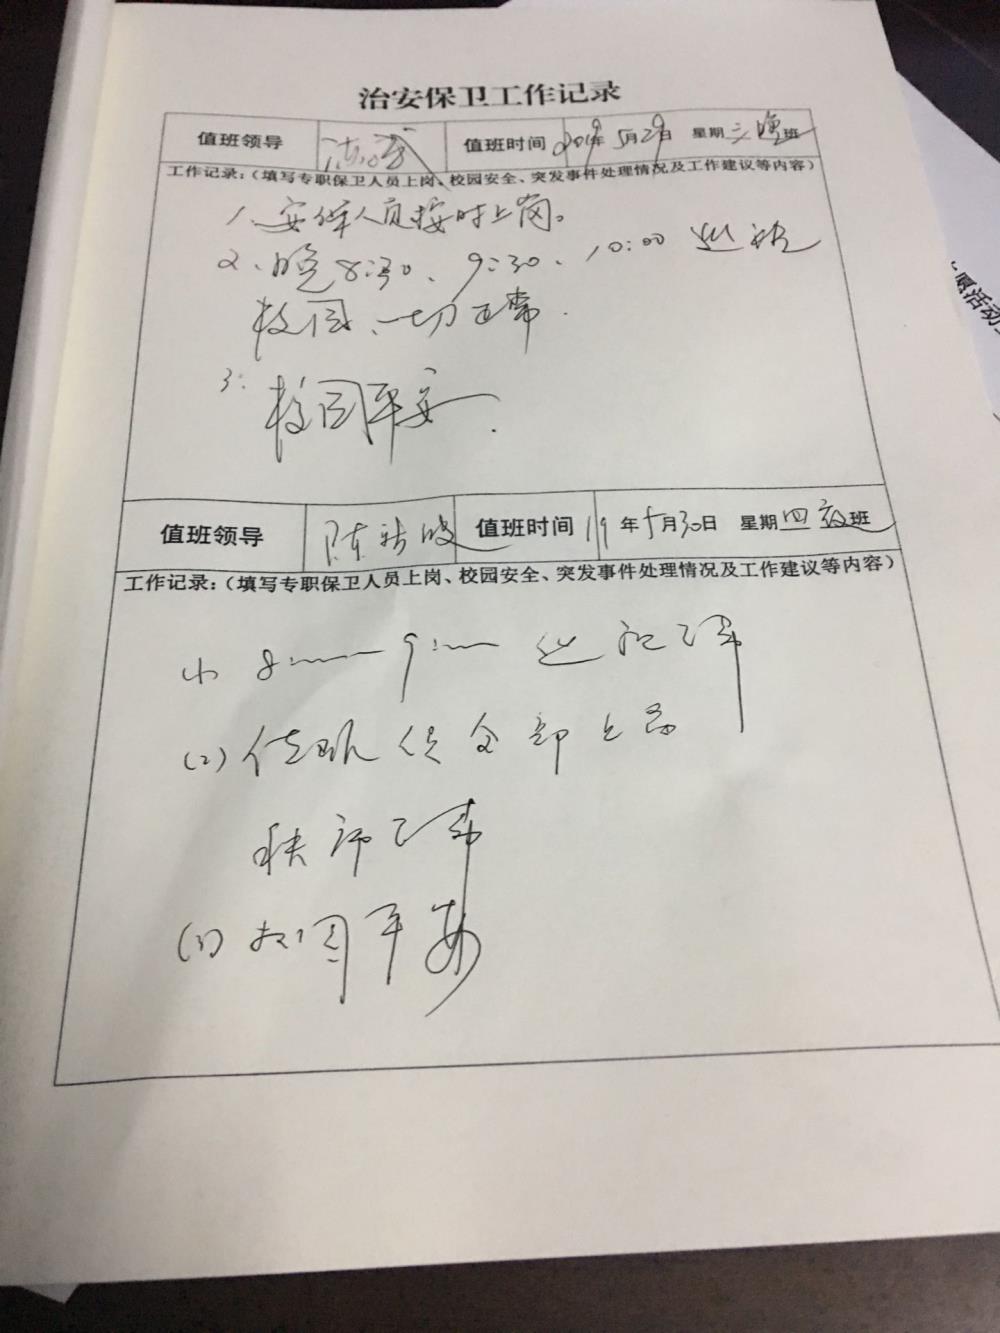 治安保卫工作记录
值班领导 值班时间 2019年5月29日 星期三 晚班
工作记录：（填写专职保卫人员上岗、校园安全、突发事件处理情况及工作建议等内容）
1、安保人员按时上岗。
2、晚8:30、9:30、10:00 巡视
校园、一切正常.
3: 校园平安.
值班领导 陈 值班时间 19年5月30日 星期四 夜班
工作记录：（填写专职保卫人员上岗、校园安全、突发事件处理情况及工作建议等内容）
(1) 8 9 巡视正常
(2) 值班 全部上岗
秩序正常
(3) 校园平安
愿活动